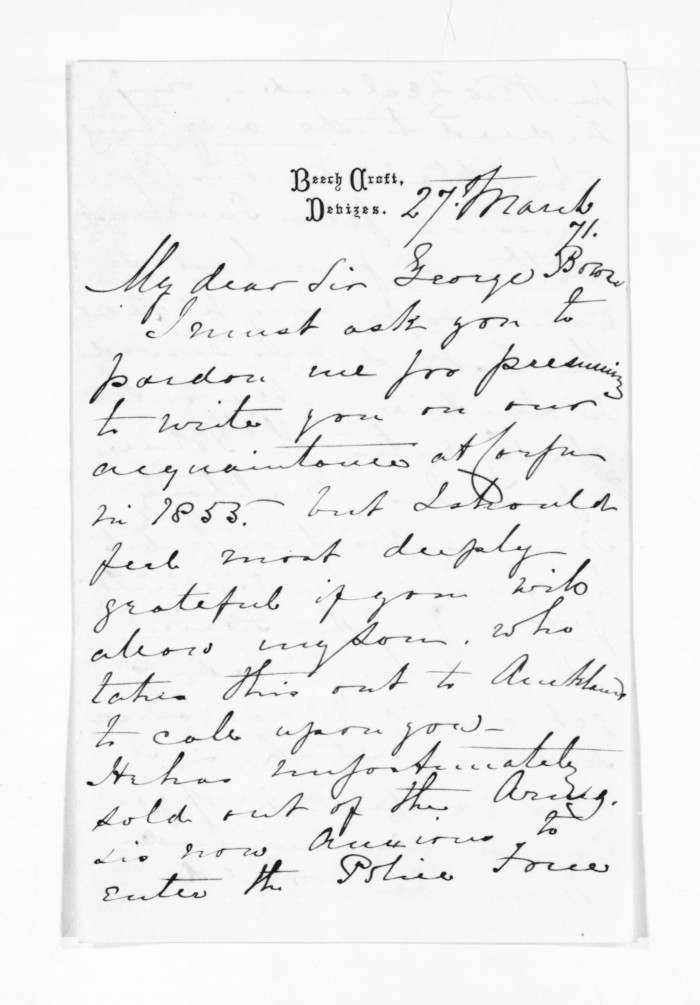 Beech Croft,
Devizes. 27th March
71.
My dear Sir George Bowen
I must ask you to
pardon me for presuming
to write you on our
acquaintance at Corfu
in 1853. but I should
feel most deeply
grateful if you will
allow my son. who
takes this out to Auckland
to call upon you—
He has unfortunately
sold out of the Army.
& is now anxious to
enter the Police Force